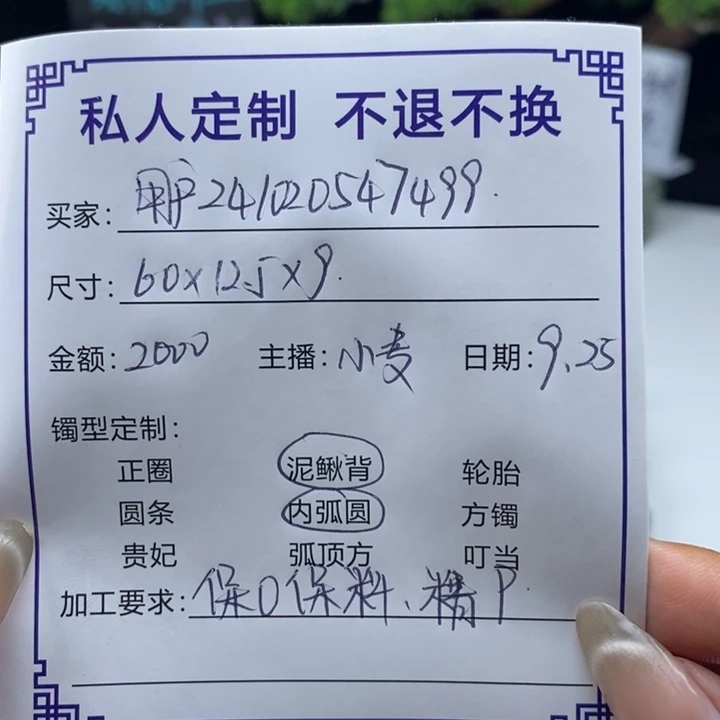 私人定制 不退不换
买家: 用户241020547499.
尺寸: 60×12.5×9.
金额: 2000 主播: 小麦 日期: 9.25
镯型定制:
正圈 泥鳅背 轮胎
圆条 内弧圆 方镯
贵妃 弧顶方 叮当
加工要求: 保O保料、精P